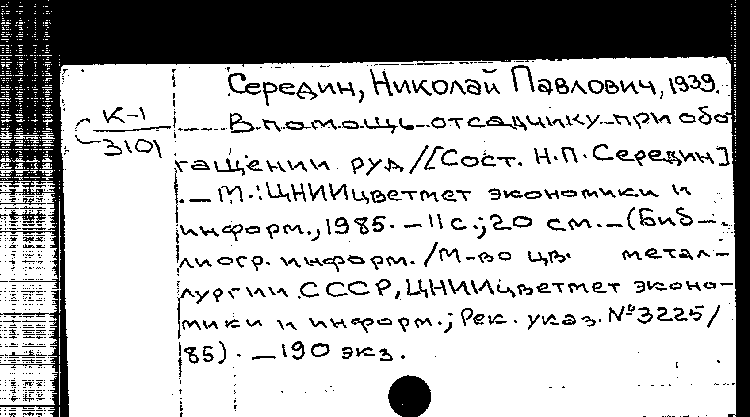 Середин, Николай Павлович, 1939.
С К-1
3101
В помощь отсадчику при обо
гащении руд/[Сост. Н.П. Середин]
. — М.: ЦНИИцветмет экономики и
информ., 1985. — 11 с.; 20 см. — (Биб-
лиогр. информ. / М-во цв. метал-
лургии СССР, ЦНИИцветмет эконо-
мики и информ.; Рек. указ. № 3225/
85). — 190 экз.